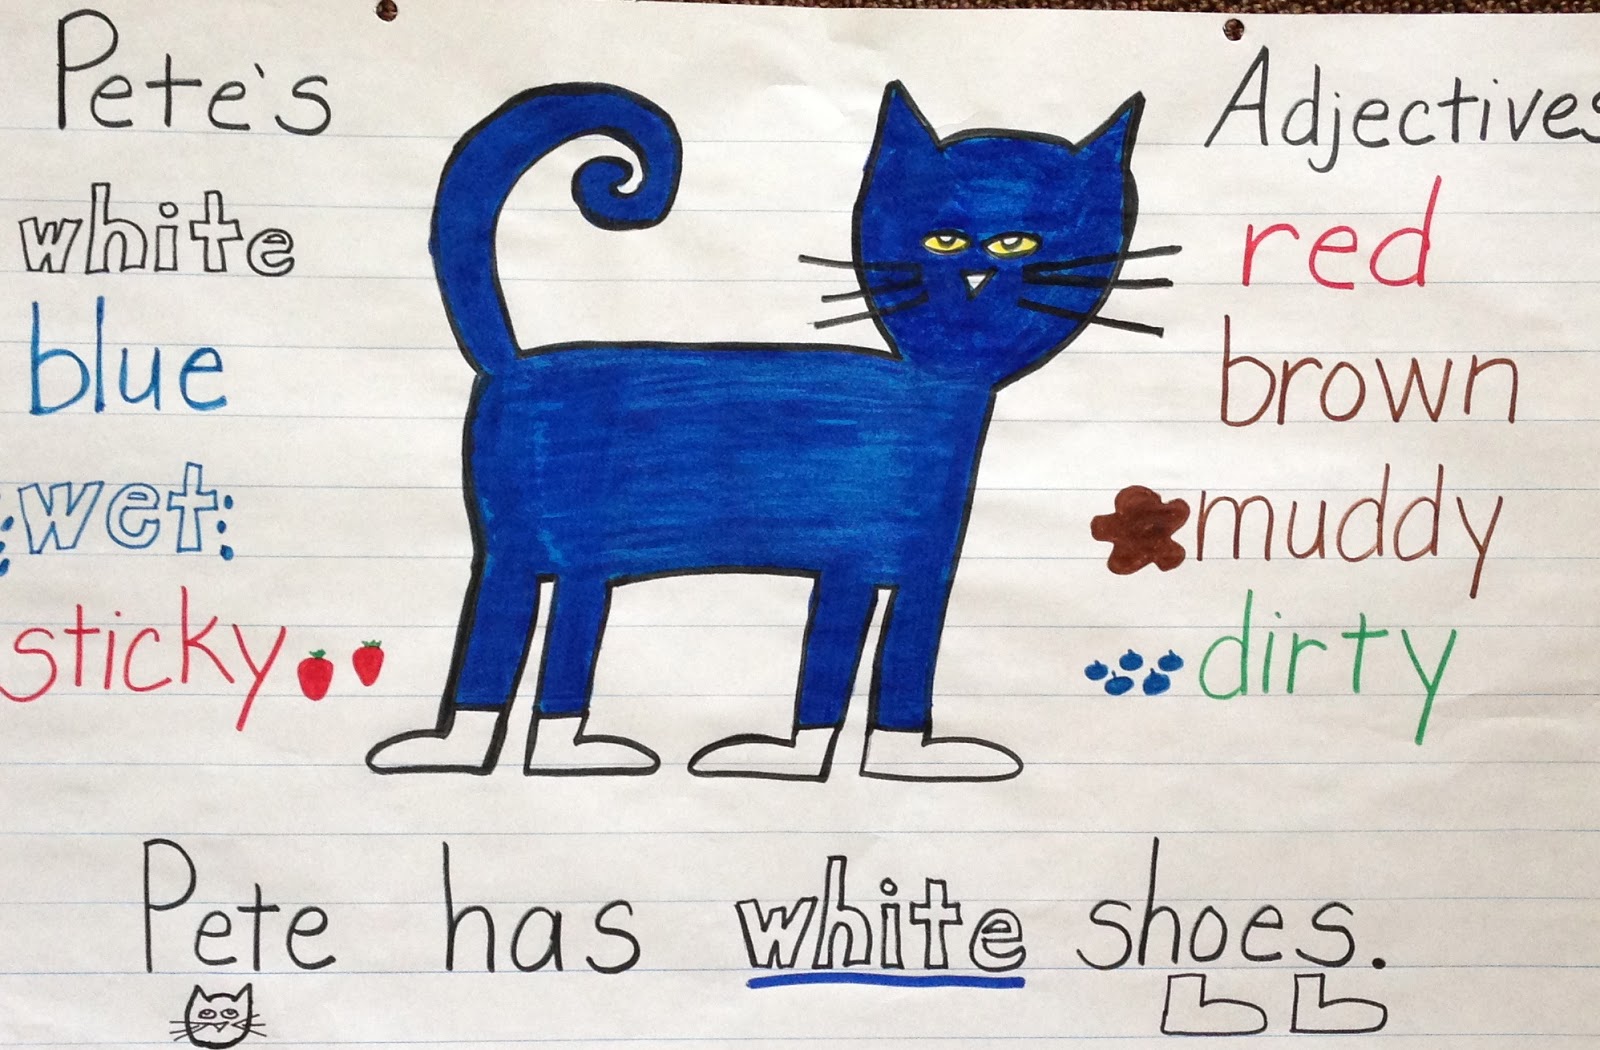 Pete's Adjectives
white
blue
wet
sticky
red
brown
muddy
dirty
Pete has white shoes.